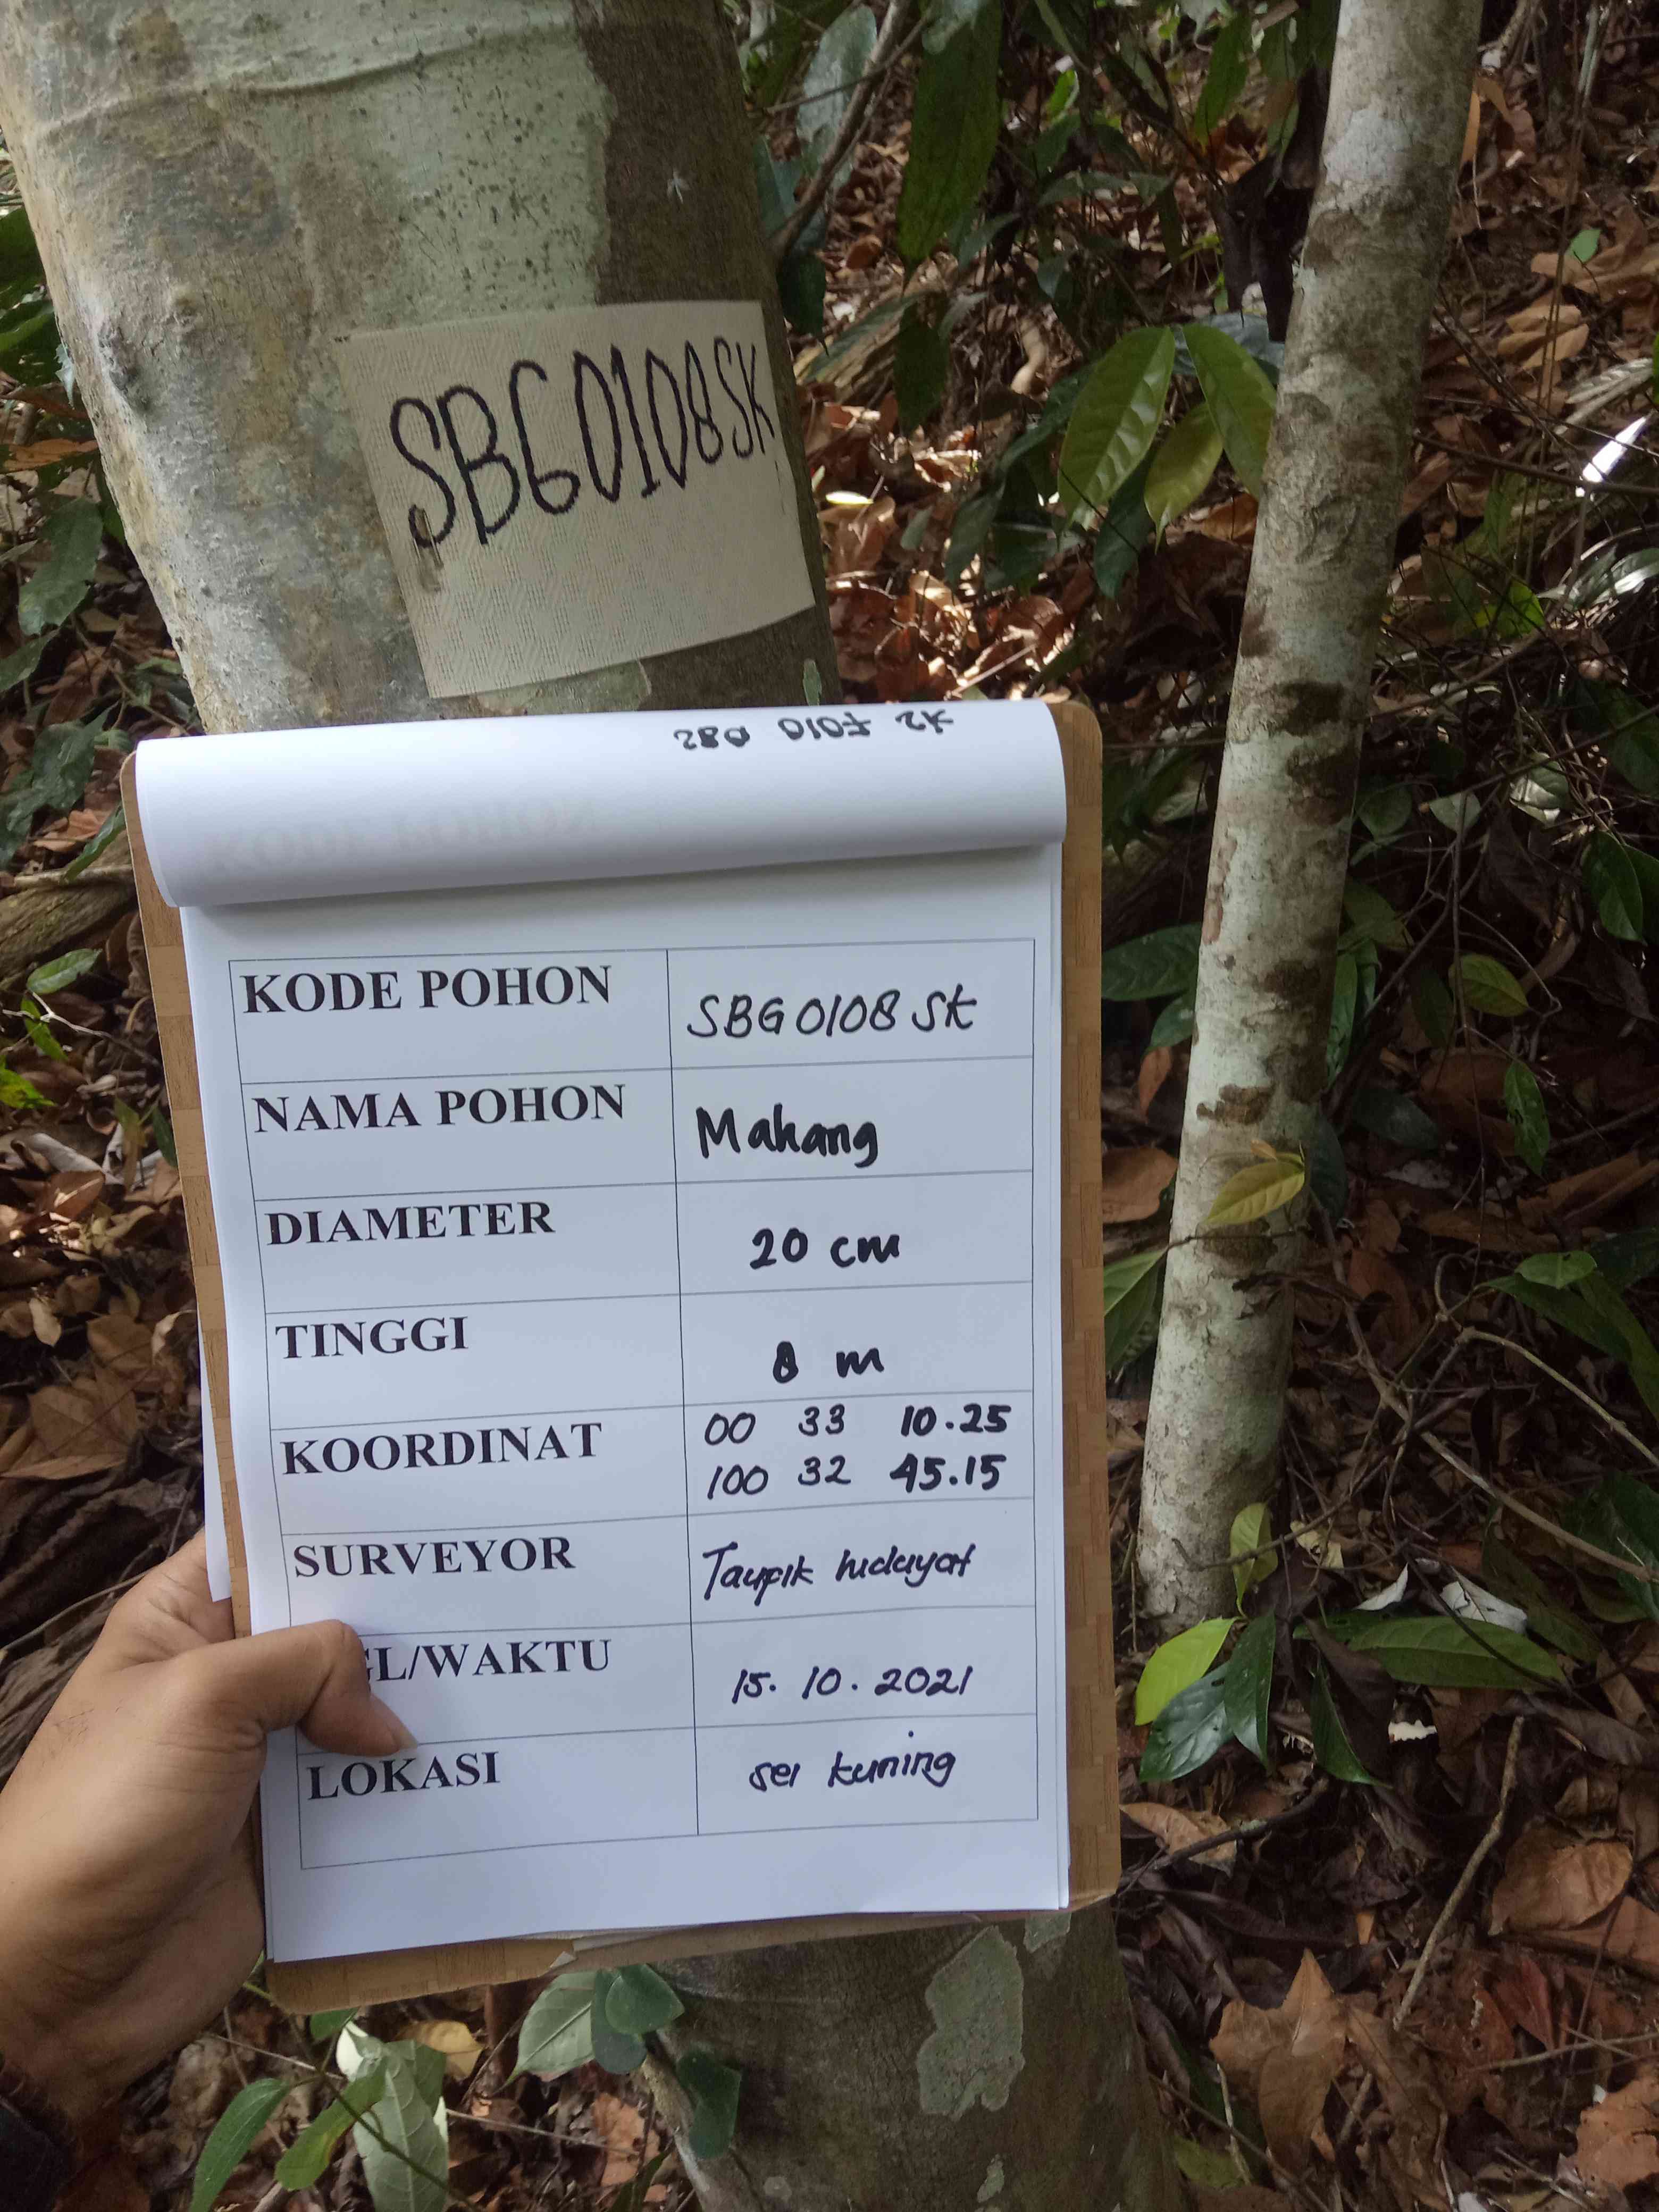 SBG0108SK
A2 F010 082
KODE POHON SBG0108SK
NAMA POHON Mahang
DIAMETER 20 cm
TINGGI 8 m
KOORDINAT 00 33 10.25
100 32 45.15
SURVEYOR Taupik hidayat
GL/WAKTU 15.10.2021
LOKASI sei kuning